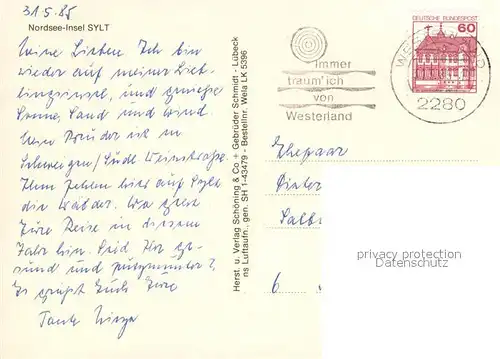 31.5.85
Nordsee-Insel SYLT
Meine Lieben Ich bin
wieder auf meiner Lieb-
lingsinsel, und genieße
Sonne, Sand und Wind.
Mein Bruder ist in
Schweigen/Südl Weinstraße.
Ihm fehlen hier auf Sylt
die Wälder. Wo geht
Eure Reise in diesem
Jahr hin. Seid Ihr ge-
sund und putzmunter?
Es grüßt Euch Eure
Tante
Herst. u. Verlag Schöning & Co + Gebrüder Schmidt, Lübeck
ns Luftaufn., gen. SH 1-43479 - Bestellnr. Wela LK 5396
immer
träum'ich
von
Westerland
DEUTSCHE BUNDESPOST
60
2280
Ehepaar
Dieter
6
privacy protection
Datenschutz